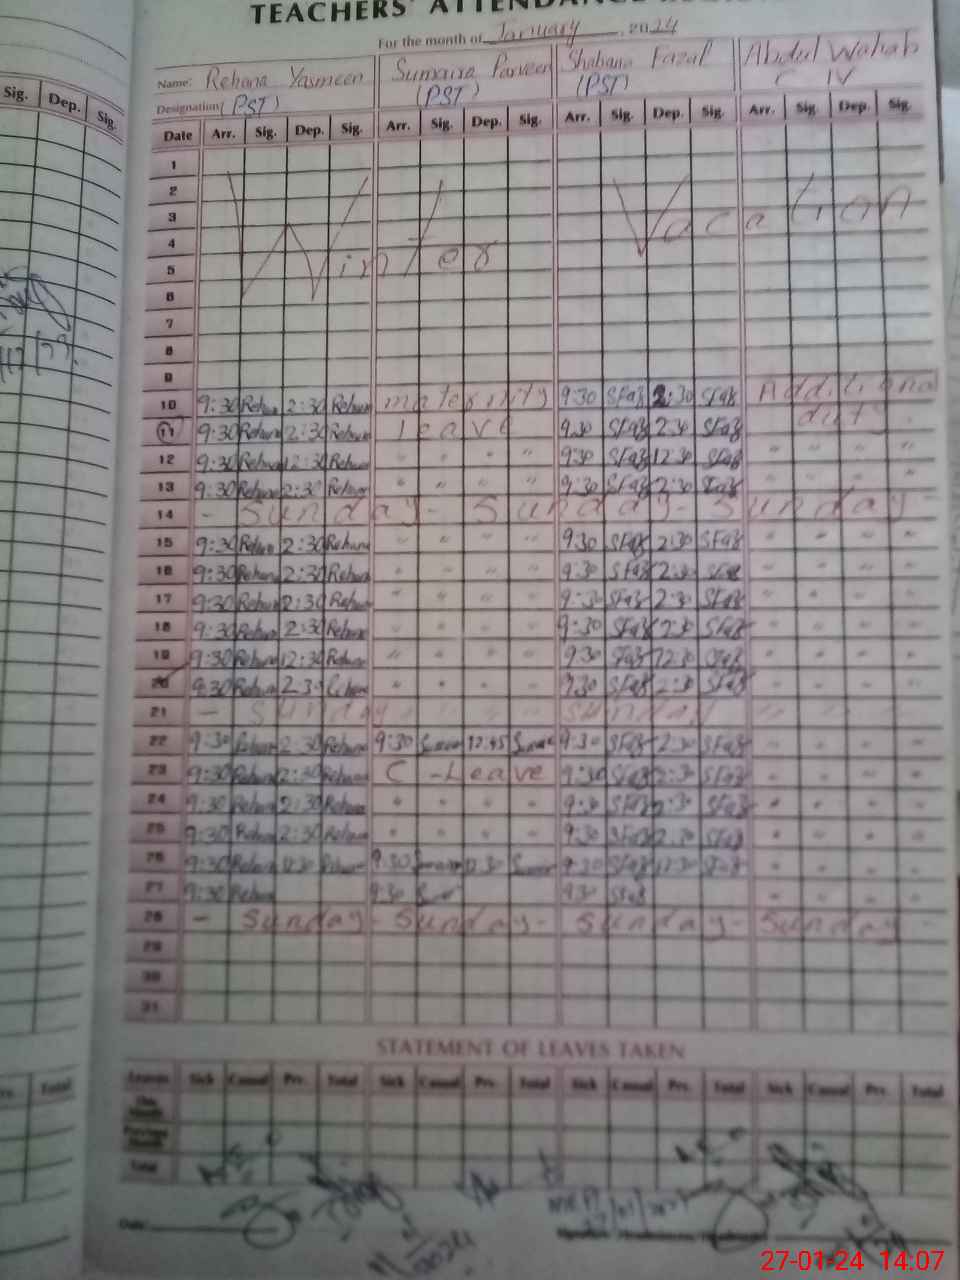 TEACHERS' ATTENDANCE
For the month of January, 2024
Name: Rehana Yasmeen Sumaira Parveen Shabana Fazal Abdul Wahab
Designation (PST) (PST) (PST) C IV
Date Arr. Sig. Dep. Sig. Arr. Sig. Dep. Sig. Arr. Sig. Dep. Sig. Arr. Sig. Dep. Sig.
1
2
3
4
5
6
7
8
9
Winter Vacation
10 9:30 Rehana 2:30 Rehana maternity 9:30 SFaz 2:30 SFaz Additional
11 9:30 Rehana 2:30 Rehana leave 9:30 SFaz 2:30 SFaz duty
12 9:30 Rehana 12:30 Rehana " " " " 9:30 SFaz 12:30 SFaz " " " "
13 9:30 Rehana 2:30 Rehana " " " " 9:30 SFaz 2:30 SFaz " " " "
14 - Sunday - Sunday - Sunday
15 9:30 Rehana 2:30 Rehana " " " " 9:30 SFaz 2:30 SFaz " " " "
16 9:30 Rehana 2:30 Rehana " " " " 9:30 SFaz 2:30 SFaz " " " "
17 9:30 Rehana 2:30 Rehana " " " " 9:30 SFaz 2:30 SFaz " " " "
18 9:30 Rehana 2:30 Rehana " " " " 9:30 SFaz 2:30 SFaz " " " "
19 9:30 Rehana 12:30 Rehana " " " " 9:30 SFaz 12:30 SFaz " " " "
20 9:30 Rehana 2:30 Rehana " " " " 9:30 SFaz 2:30 SFaz " " " "
21 - Sunday " " " " Sunday " " " "
22 9:30 Rehana 2:30 Rehana 9:30 12:45 9:30 SFaz 2:30 SFaz " " " "
23 9:30 Rehana 2:30 Rehana C - Leave 9:30 SFaz 2:30 SFaz " " " "
24 9:30 Rehana 2:30 Rehana " " " " 9:30 SFaz 2:30 SFaz " " " "
25 9:30 Rehana 2:30 Rehana " " " " 9:30 SFaz 2:30 SFaz " " " "
26 9:30 Rehana 12:30 Rehana 9:30 12:30 9:30 SFaz 12:30 SFaz " " " "
27 9:30 Rehana 9:30 9:30 SFaz " " " "
28 - Sunday - Sunday - Sunday - Sunday -
29
30
31
STATEMENT OF LEAVES TAKEN
Leaves Sick Casual Prv. Total Sick Casual Prv. Total Sick Casual Prv. Total Sick Casual Prv. Total
This Month
Previous Month
Total
Date:
Sig. Dep. Sig.
Total
27-01-24 14:07